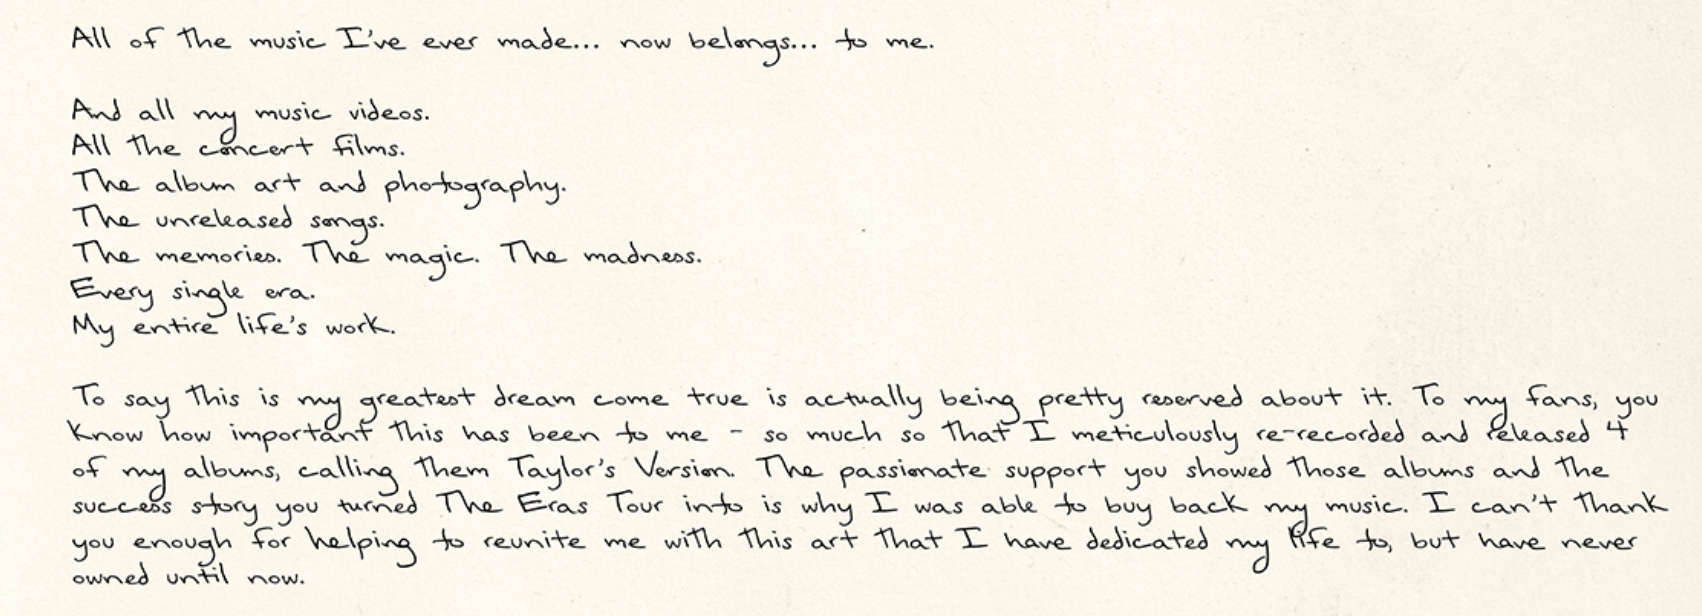 All of the music I've ever made... now belongs... to me.
And all my music videos.
All the concert films.
The album art and photography.
The unreleased songs.
The memories. The magic. The madness.
Every single era.
My entire life's work.
To say this is my greatest dream come true is actually being pretty reserved about it. To my fans, you
know how important this has been to me - so much so that I meticulously re-recorded and released 4
of my albums, calling them Taylor's Version. The passionate support you showed those albums and the
success story you turned The Eras Tour into is why I was able to buy back my music. I can't thank
you enough for helping to reunite me with this art that I have dedicated my life to, but have never
owned until now.